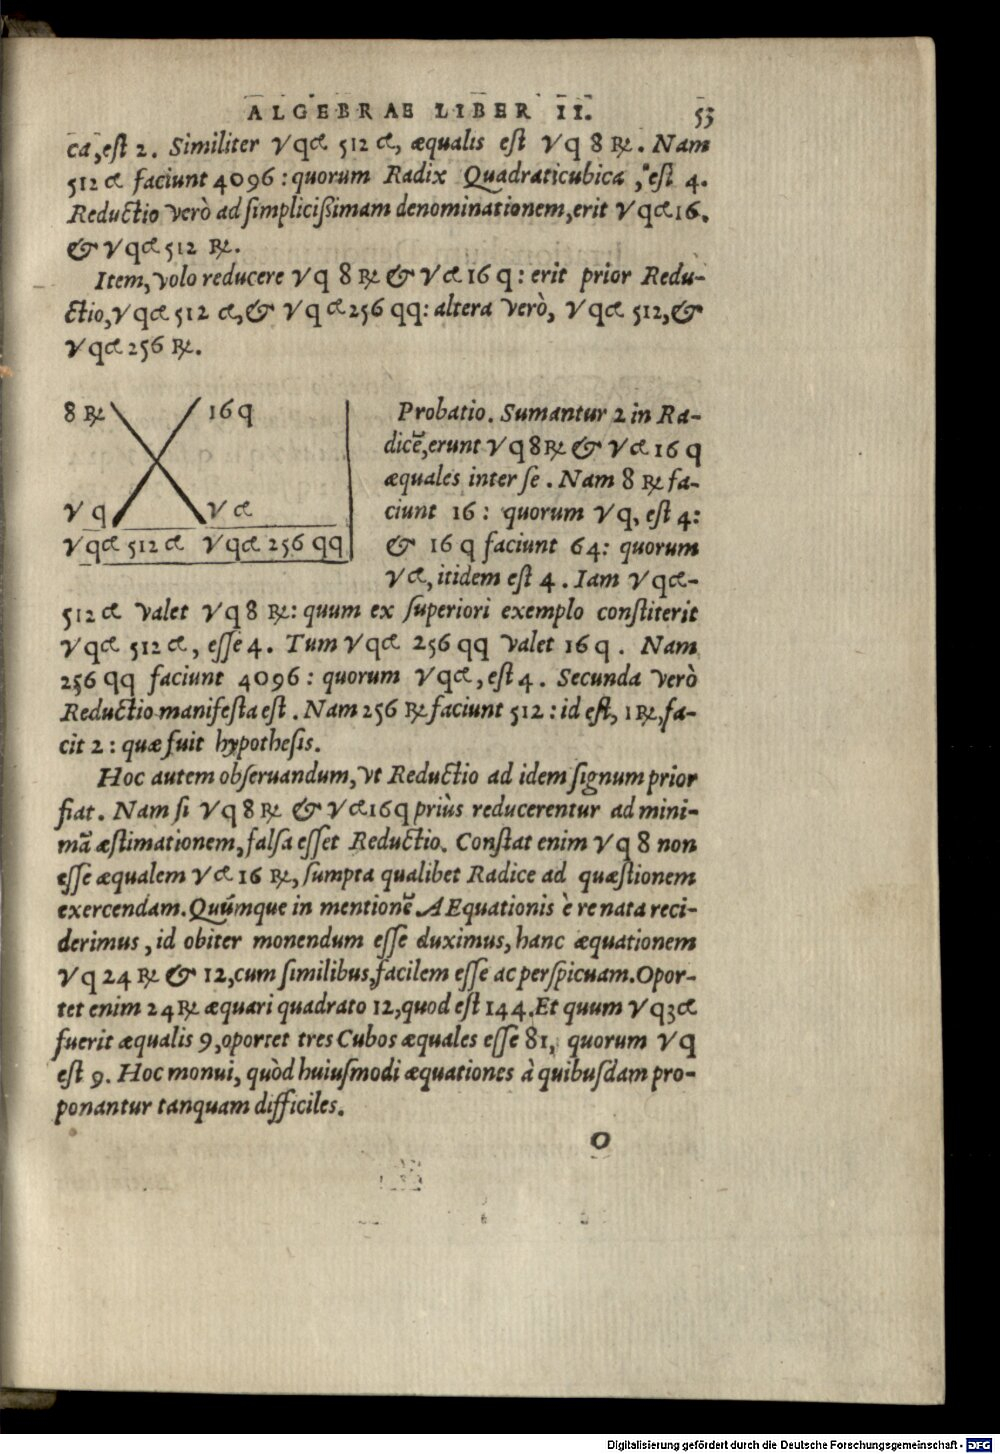 ALGEBRAE LIBER II. 53
ca, est 2. Similiter √ qc͡e 512 c͡e, æqualis est √ q 8 ℞. Nam
512 c͡e faciunt 4096 : quorum Radix Quadraticubica, est 4.
Reductio verò ad simplicißimam denominationem, erit √ qc͡e 16.
& √ qc͡e 512 ℞.
Item, volo reducere √ q 8 ℞ & √ c͡e 16 q : erit prior Redu-
ctio, √ qc͡e 512 c͡e, & √ q c͡e 256 qq : altera verò, √ qc͡e 512, &
√ qc͡e 256 ℞.
8 ℞ 16 q
√ q √ c͡e
√ qc͡e 512 c͡e √ qc͡e 256 qq
Probatio. Sumantur 2 in Ra-
dicē, erunt √ q 8 ℞ & √ c͡e 16 q
æquales inter se. Nam 8 ℞ fa-
ciunt 16 : quorum √ q, est 4 :
& 16 q faciunt 64 : quorum
√ c͡e, itidem est 4. Iam √ qc͡e-
512 c͡e valet √ q 8 ℞ : quum ex superiori exemplo constiterit
√ qc͡e 512 c͡e, esse 4. Tum √ qc͡e 256 qq valet 16 q. Nam
256 qq faciunt 4096 : quorum √ qc͡e, est 4. Secunda verò
Reductio manifesta est. Nam 256 ℞ faciunt 512 : id est, 1 ℞, fa-
cit 2 : quæ fuit hypothesis.
Hoc autem obseruandum, vt Reductio ad idem signum prior
fiat. Nam si √ q 8 ℞ & √ c͡e 16 q priùs reducerentur ad mini-
mā æstimationem, falsa esset Reductio. Constat enim √ q 8 non
esse æqualem √ c͡e 16 ℞, sumpta qualibet Radice ad quæstionem
exercendam. Quúmque in mentionē AEquationis è re nata reci-
derimus, id obiter monendum esse duximus, hanc æquationem
√ q 24 ℞ & 12, cum similibus, facilem esse ac perspicuam. Opor-
tet enim 24 ℞ æquari quadrato 12, quod est 144. Et quum √ q3c͡e
fuerit æqualis 9, oportet tres Cubos æquales esse 81, quorum √ q
est 9. Hoc monui, quòd huiusmodi æquationes à quibusdam pro-
ponantur tanquam difficiles.
O
Digitalisierung gefördert durch die Deutsche Forschungsgemeinschaft - DFG